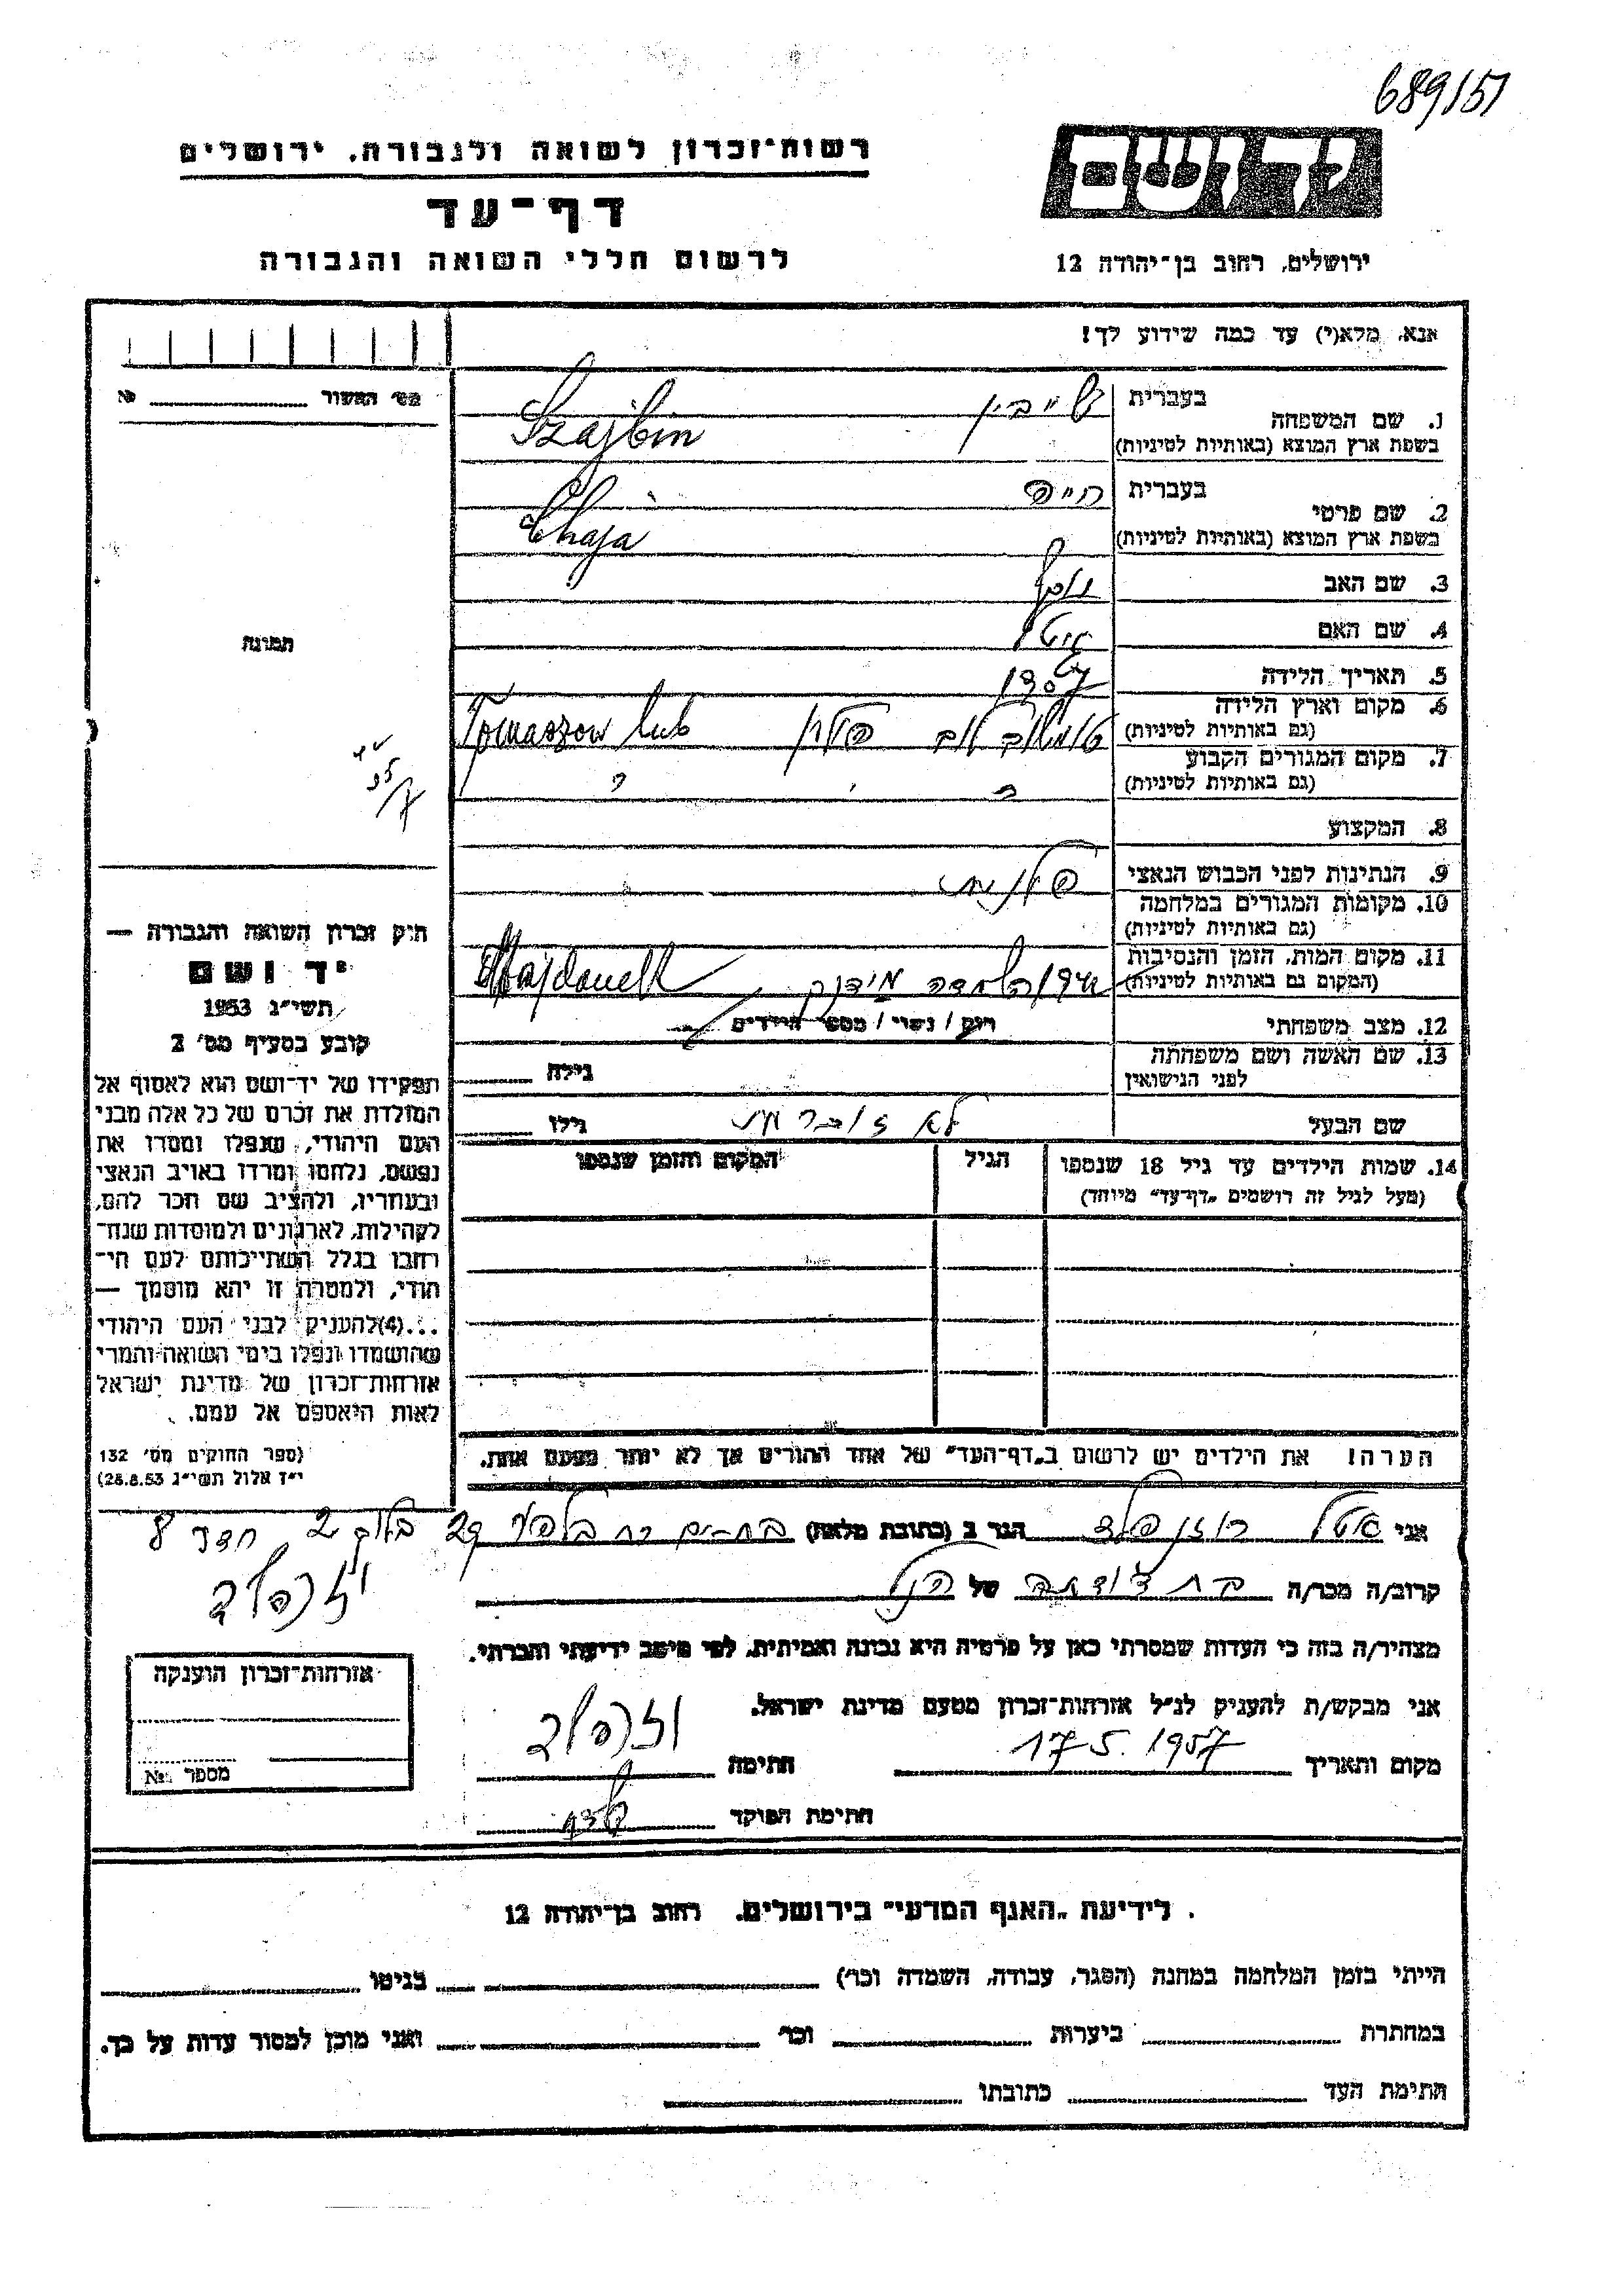 689/51
רשות־זכרון לשואה ולגבורה, ירושלים
דף־עד
לרשום חללי השואה והגבורה
יד ושם
ירושלים, רחוב בן־יהודה 12
אנא, מלא(י) עד כמה שידוע לך!
מס' האשור №
1. שם המשפחה
בעברית שייבין
בשפת ארץ המוצא (באותיות לטיניות) Szajbin
2. שם פרטי
בעברית חייה
בשפת ארץ המוצא (באותיות לטיניות) Chaja
3. שם האב
4. שם האם
תמונה
5. תאריך הלידה 1907
6. מקום וארץ הלידה
(גם באותיות לטיניות) טומשוב לוב פולין Tomaszow lub
7. מקום המגורים הקבוע
(גם באותיות לטיניות)
8. המקצוע
9. הנתינות לפני הכבוש הנאצי פולנית
10. מקומות המגורים במלחמה
(גם באותיות לטיניות)
11. מקום המות, הזמן והנסיבות
(המקום גם באותיות לטיניות) מידנק Majdanek
12. מצב משפחתי רווק / נשוי / מספר הילדים
13. שם האשה ושם משפחתה גילה
לפני הנישואין
שם הבעל לא זוכרת גילו
14. שמות הילדים עד גיל 18 שנספו הגיל המקום והזמן שנספו
(מעל לגיל זה רושמים „דף־עד" מיוחד)
חוק זכרון השואה והגבורה —
יד ושם
תשי"ג 1953
קובע בסעיף מס' 2
תפקידו של יד־ושם הוא לאסוף אל
המולדת את זכרם של כל אלה מבני
העם היהודי, שנפלו ומסרו את
נפשם, נלחמו ומרדו באויב הנאצי
ובעוזריו, ולהציב שם וזכר להם,
לקהילות, לארגונים ולמוסדות שנח־
רבו בגלל השתייכותם לעם הי־
הודי, ולמטרה זו יהא מוסמך —
...(4)להעניק לבני העם היהודי
שהושמדו ונפלו בימי השואה והמרי
אזרחות־זכרון של מדינת ישראל
לאות היאספם אל עמם.
(ספר החוקים מס' 132
י"ז אלול תשי"ג 28.8.53)
הערה! את הילדים יש לרשום ב„דף־העד" של אחד ההורים אך לא יותר מפעם אחת.
אני רוזנפלד הגר ב (כתובת מלאה) 29 בלוק 2 חדר 8
קרוב/ה מכר/ה בת דודתה של הנ"ל
מצהיר/ה בזה כי העדות שמסרתי כאן על פרטיה היא נכונה ואמיתית, לפי מיטב ידיעתי והכרתי.
אני מבקש/ת להעניק לנ"ל אזרחות־זכרון מטעם מדינת ישראל.
מקום ותאריך 17.5.1957 חתימה
חתימת הפוקד
אזרחות־זכרון הוענקה
מספר №
לידיעת „האגף המדעי" בירושלים. רחוב בן־יהודה 12
הייתי בזמן המלחמה במחנה (הסגר, עבודה, השמדה וכו') בגיטו
במחתרת ביערות וכו' ואני מוכן למסור עדות על כך.
חתימת העד כתובתו